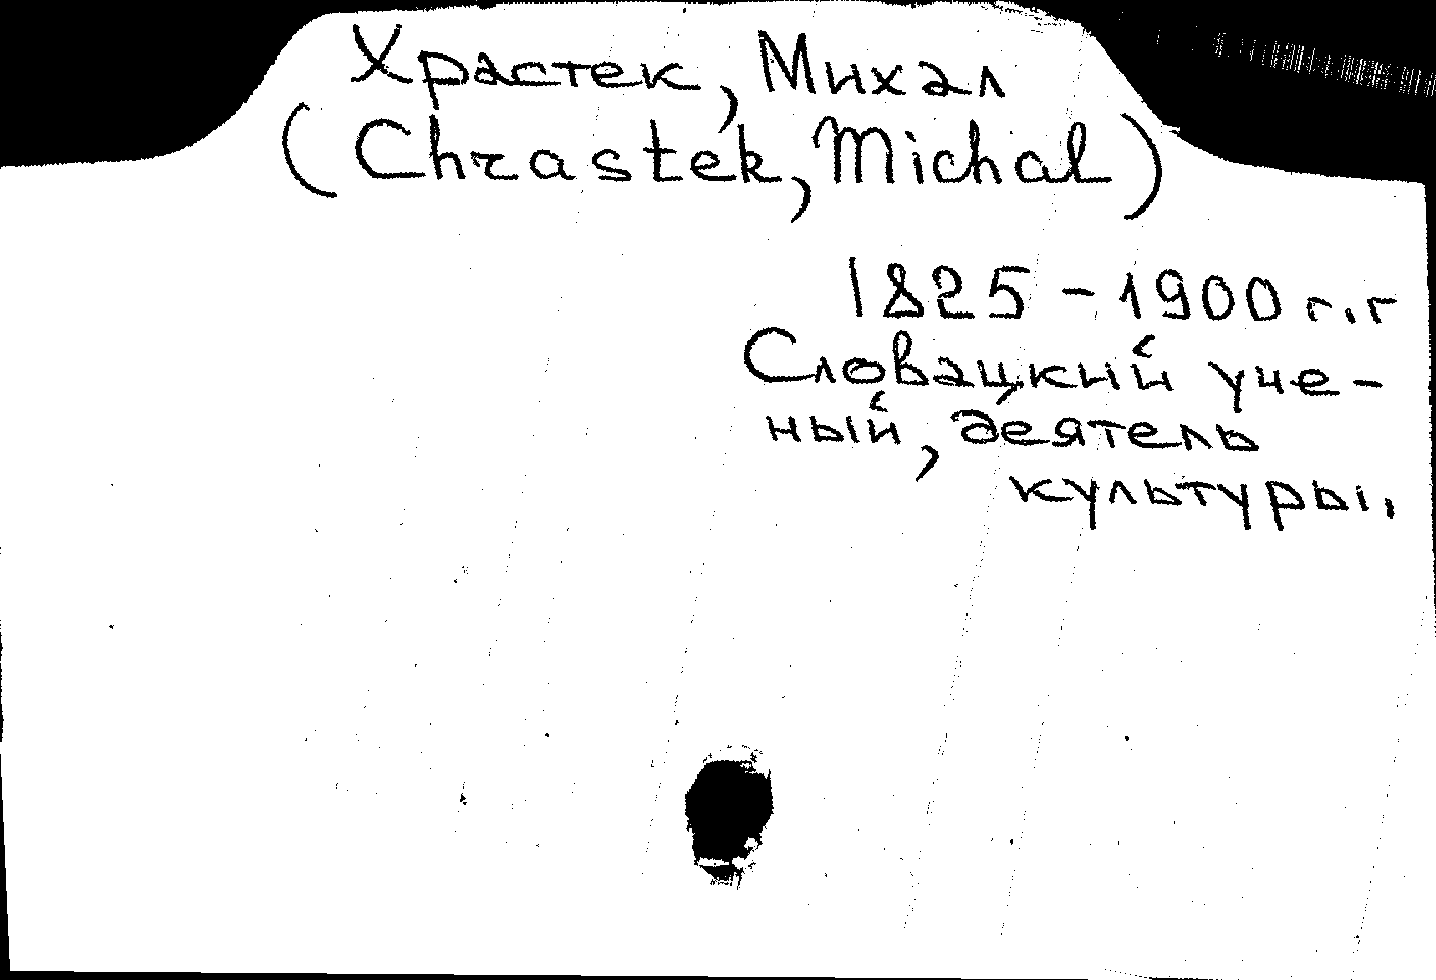 Храстек, Михал
(Chrastek, Michal)
1825 - 1900 г.г
Словацкий уче-
ный, деятель
культуры.